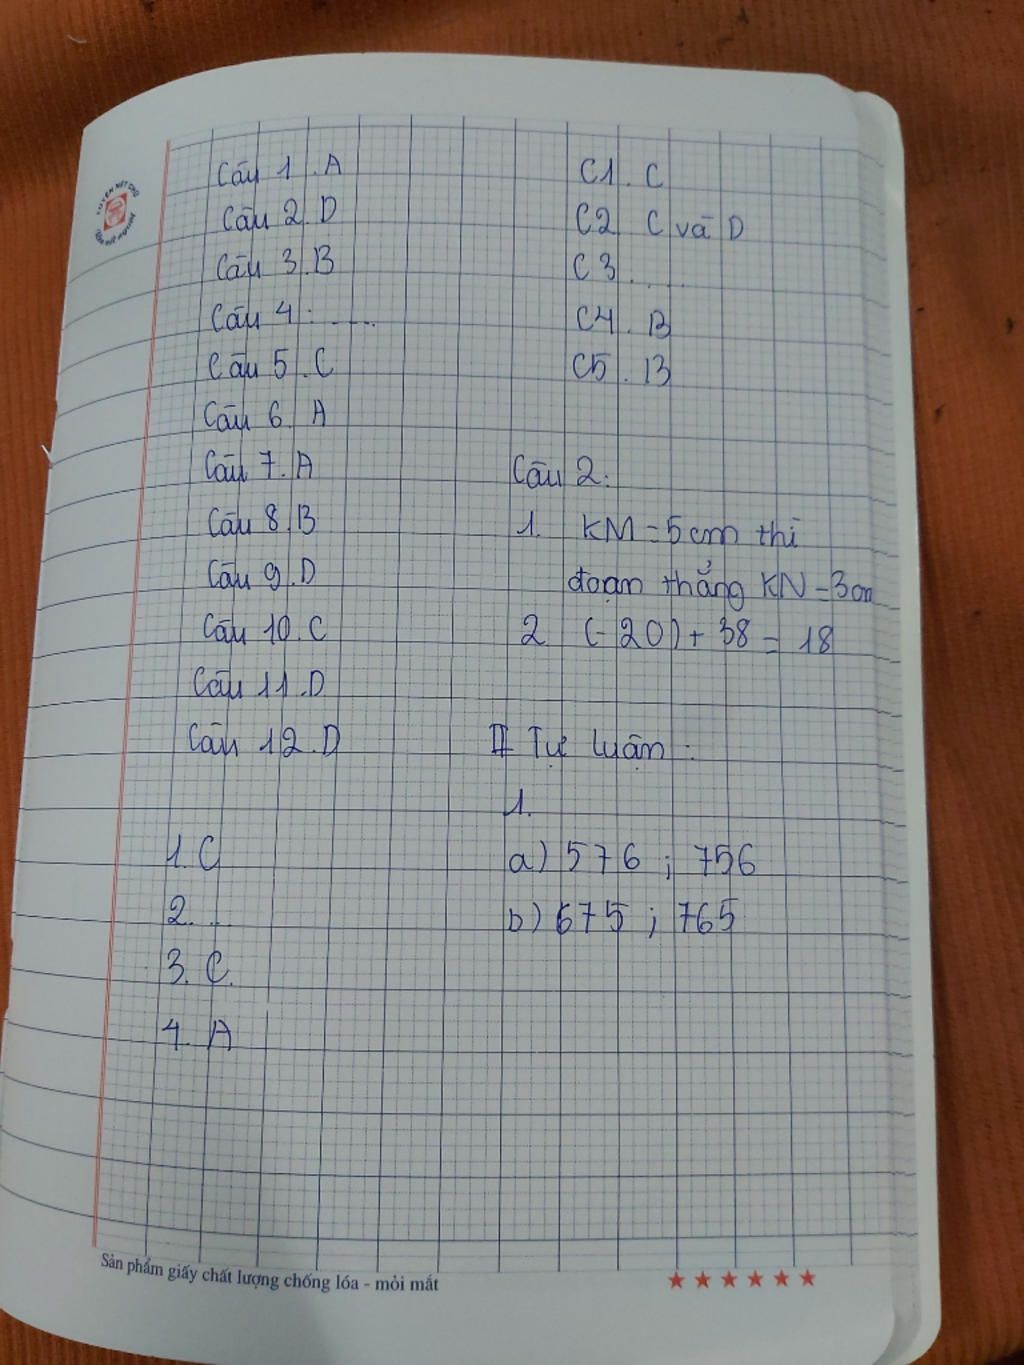 LUYỆN NÉT CHỮ
RÈN NẾT NGƯỜI
Câu 1. A
Câu 2. D
Câu 3. B
Câu 4: .....
Câu 5. C
Câu 6. A
Câu 7. A
Câu 8. B
Câu 9. D
Câu 10. C
Câu 11. D
Câu 12. D
1. C
2. ...
3. C.
4. A
C1. C
C2. C và D
C3. ...
C4. B
C5. B
Câu 2:
1. KM = 5cm thì
đoạn thẳng KN = 3cm
2. (-20) + 38 = 18
II Tự luận :
1.
a) 576 ; 756
b) 675 ; 765
Sản phẩm giấy chất lượng chống lóa - mỏi mắt